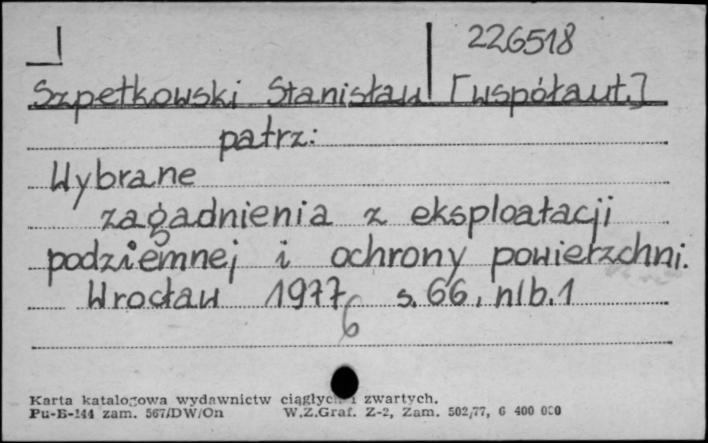 226518
Szpetkowski Stanisław [współaut.]
patrz:
Wybrane
zagadnienia z eksploatacji
podziemnej i ochrony powierzchni.
Wrocław 1977 s. 66, nlb. 1
6
Karta katalogowa wydawnictw ciągłych i zwartych.
Pu-B-144 zam. 567/DW/On W.Z.Graf. Z-2, Zam. 502/77, 6 400 000